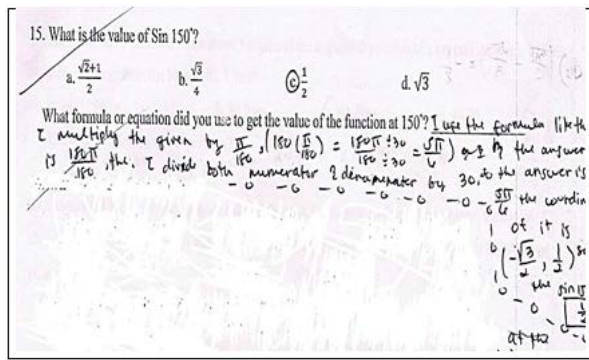 15. What is the value of Sin 150°?
a. √2+1/2 b. √3/4 c. 1/2 d. √3
What formula or equation did you use to get the value of the function at 150°? I use the formula like th
I multiply the given by π/180, (150(π/180) = 150π÷30/180÷30 = 5π/6) the answer
is 150π/180, the, I divide both numerator & denominator by 30, the answer is
5π/6 the coordin
of it is
(-√3/2, 1/2) so
the sin is
1/2